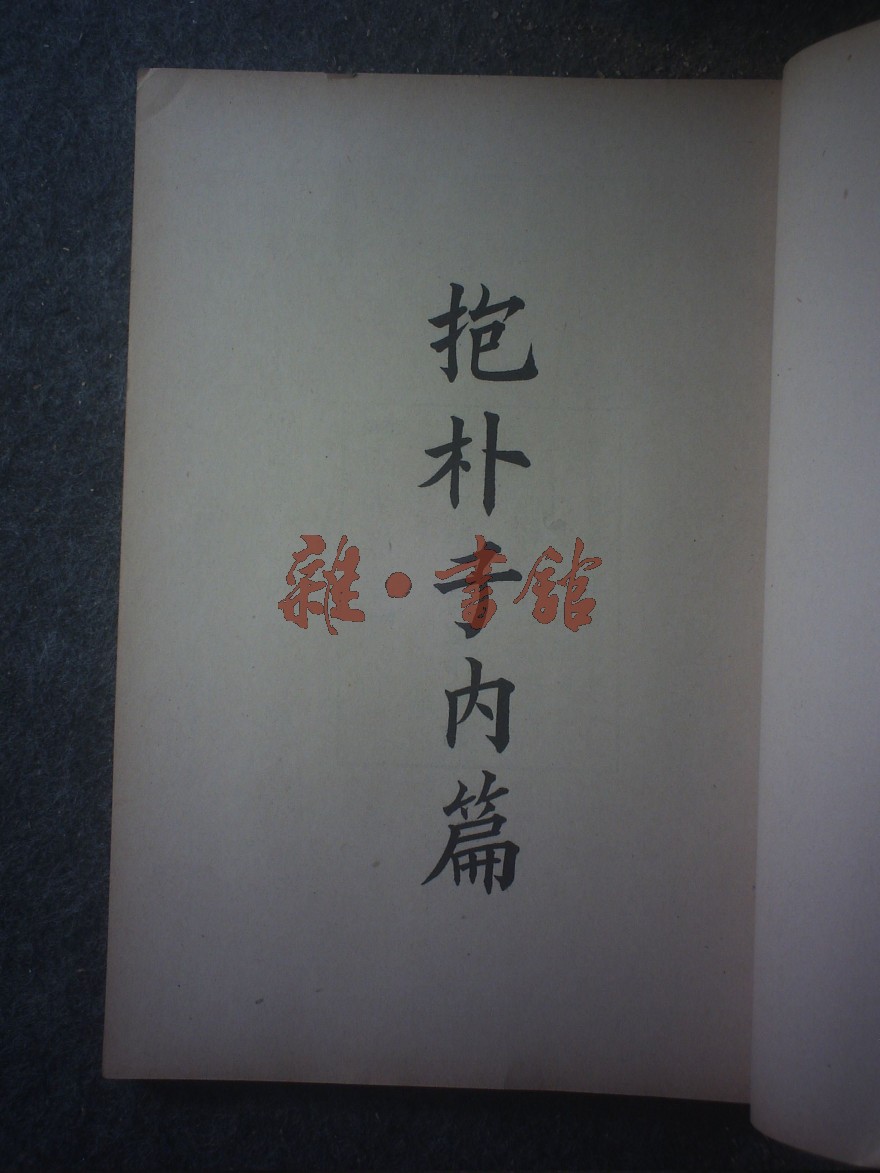 抱朴子内篇
雜·書館